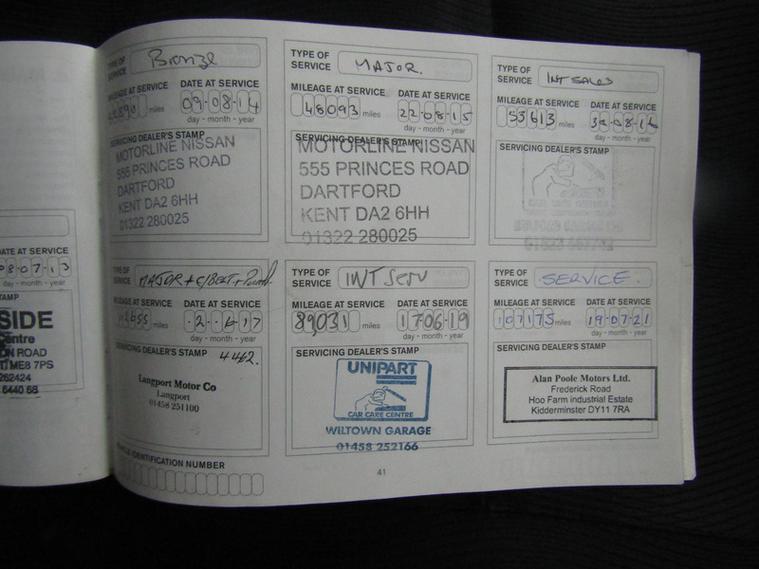 DATE AT SERVICE
08-07-13
day - month - year
STAMP
SIDE
Centre
ON ROAD
ME8 7PS
262424
6440 6
TYPE OF
SERVICE
Bronze
MILEAGE AT SERVICE
miles
DATE AT SERVICE
09-08-14
day - month - year
SERVICING DEALER'S STAMP
MOTORLINE NISSAN
555 PRINCES ROAD
DARTFORD
KENT DA2 6HH
01322 280025
TYPE OF
SERVICE
MAJOR.
MILEAGE AT SERVICE
48093 miles
DATE AT SERVICE
22-08-15
day - month - year
SERVICING DEALER'S STAMP
MOTORLINE NISSAN
555 PRINCES ROAD
DARTFORD
KENT DA2 6HH
01322 280025
TYPE OF
SERVICE
INT
MILEAGE AT SERVICE
53613 miles
DATE AT SERVICE
30-08-16
day - month - year
SERVICING DEALER'S STAMP
CAR CARE CENTRE
TYPE OF
SERVICE
MAJOR + C/BELT +
MILEAGE AT SERVICE
miles
DATE AT SERVICE
17
day - month - year
SERVICING DEALER'S STAMP
4462.
Langport Motor Co
Langport
01458 251100
TYPE OF
SERVICE
INT Serv
MILEAGE AT SERVICE
89031 miles
DATE AT SERVICE
17 06 19
day - month - year
SERVICING DEALER'S STAMP
UNIPART
CAR CARE CENTRE
WILTOWN GARAGE
01458 252166
TYPE OF
SERVICE
SERVICE.
MILEAGE AT SERVICE
107175 miles
DATE AT SERVICE
19-07-21
day - month - year
SERVICING DEALER'S STAMP
Alan Poole Motors Ltd.
Frederick Road
Hoo Farm industrial Estate
Kidderminster DY11 7RA
VEHICLE IDENTIFICATION NUMBER
41